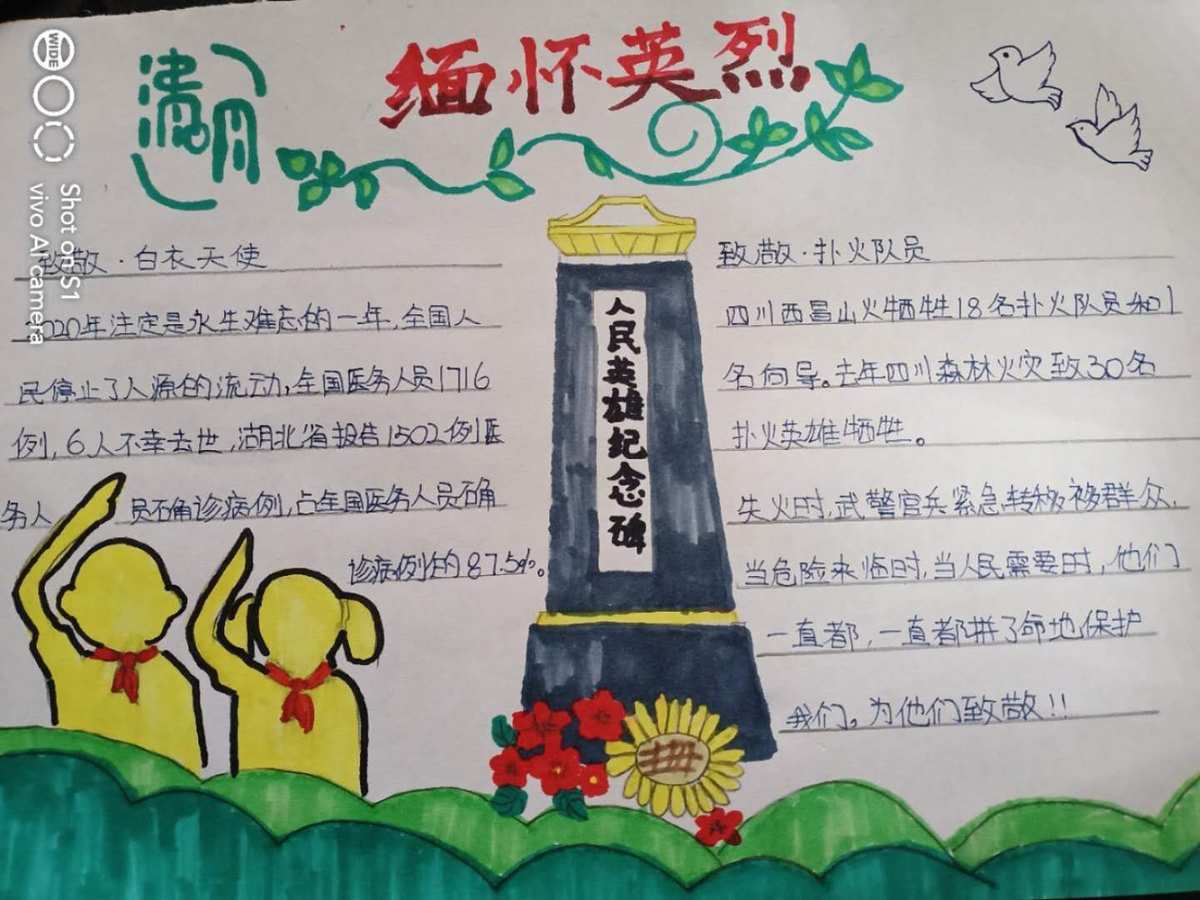 缅怀英烈
清明
WIDE
Shot on S1
vivo AI camera
致敬·白衣天使
2020年注定是永生难忘的一年,全国人
民停止了人源的流动,全国医务人员1716
例,6人不幸去世,湖北省报告1502例医
务人员确诊病例,占全国医务人员确
诊病例的87.5%。
人民英雄纪念碑
致敬·扑火队员
四川西昌山火牺牲18名扑火队员和1
名向导。去年四川森林火灾致30名
扑火英雄牺牲。
失火时,武警官兵紧急转移群众.
当危险来临时,当人民需要时,他们
一直都,一直都拼了命地保护
我们。为他们致敬!!